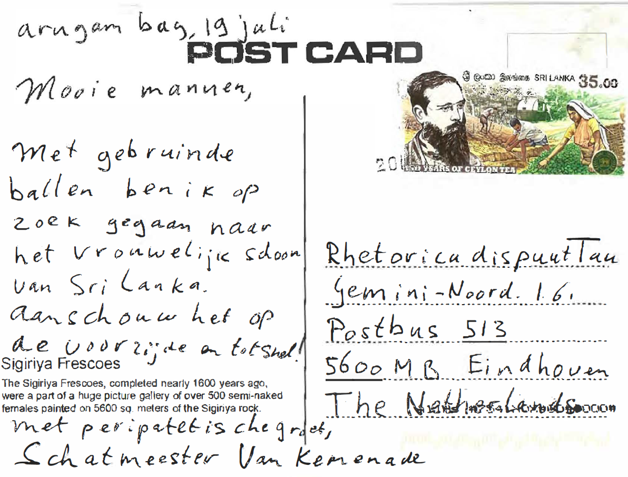 arugam bay, 19 juli
POST CARD
Mooie mannen,
Met gebruinde
ballen ben ik op
zoek gegaan naar
het vrouwelijk schoon
van Sri Lanka.
Aanschouw het op
de voorzijde en tot snel!
Sigiriya Frescoes
The Sigiriya Frescoes, completed nearly 1600 years ago,
were a part of a huge picture gallery of over 500 semi-naked
females painted on 5600 sq. meters of the Sigiriya rock.
met peripatetische groet,
Schatmeester Van Kemenade
ශ්‍රී ලංකා இலங்கை SRI LANKA 35.00
YEARS OF CEYLON TEA
Rhetorica dispuut Tau
Gemini-Noord. 1.6.
Postbus 513
5600 MB Eindhoven
The Netherlands